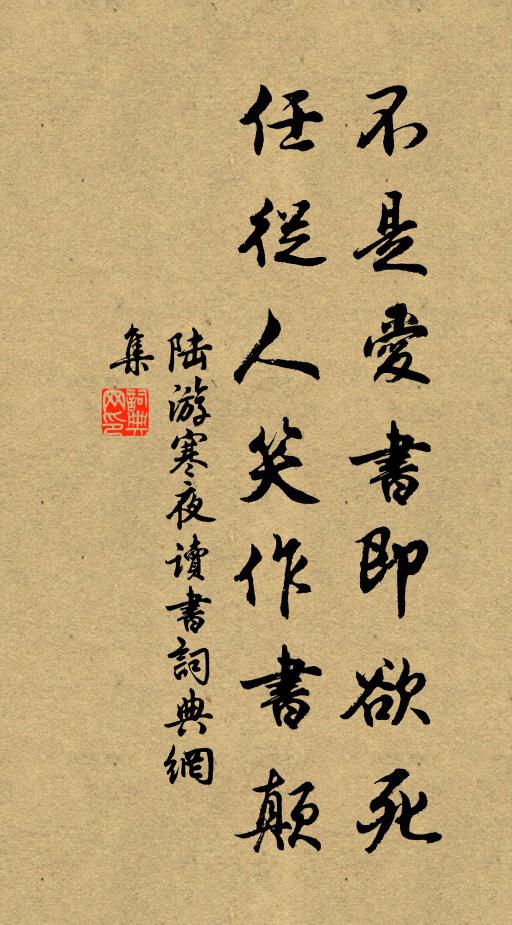 不是愛書即欲死
任從人笑作書顛
陸游寒夜讀書詞典網
集
詞典網印